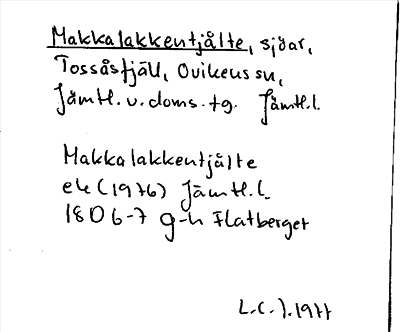 Makkalakkentjålte, sjöar,
Tossåsfjäll, Ovikens sn,
Jämtl. v. doms. tg. Jämtl.l.
Makkalakkentjålte
ek (1976) Jämtl.l.
18D 6-7 g-h Flatberget
L.C.J. 1977